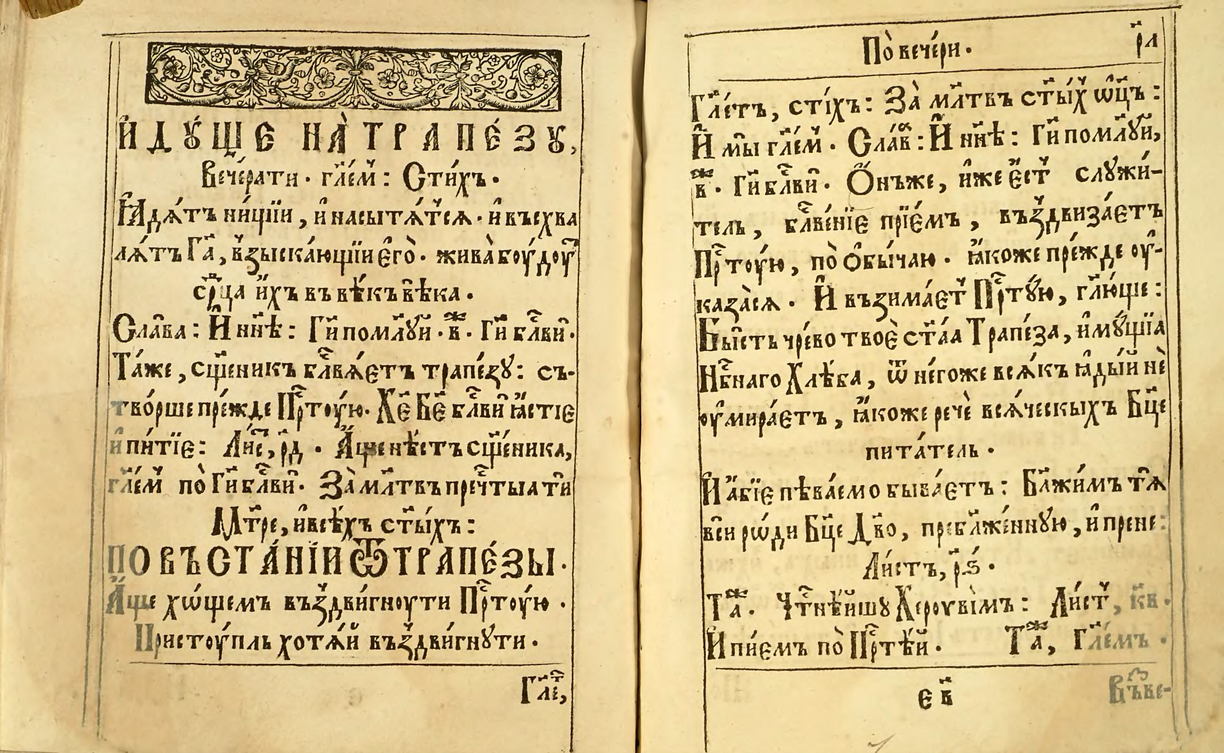 И҆ДУ́ЩЕ НА̀ ТРАПЕ́ЗУ,
Вече́рѧти · гл҃ем : Сти́хъ ·
Ꙗ҆дѧ́тъ ни́щїи , и҆ насытѧ́тсѧ · и҆ въсхва
лѧ́тъ Гⷭ҇а , взыска́ющїи є҆го̀ · жива̀ боу́доу́т
ср҃ца и҆́хъ въ вѣ́къ вѣ́ка ·
Сла́ва : И҆ нн҃ѣ : Гⷭ҇и помл҃уй · в҃ · Гⷭ҇и бл҃ви ·
Та́же , сщ҃еникъ бл҃вѧ́етъ трапе́зу : съ-
тво́рше пре́жде Прⷭ҇тоую · Хⷭ҇е Бж҃е бл҃ви ꙗ҆́стїе
и҆ пи́тїе : Ли́с , р҃д · А҆́ще нѣ́стъ сщ҃еника ,
гл҃ем по̀ Гⷭ҇и бл҃ви · За̀ мл҃твъ пречⷭ҇тыа ти
Мт҃ре , и҆ всѣ́хъ ст҃ы́хъ :
ПО ВЪСТА́НЇИ Ѿ ТРАПЕ́ЗЫ ·
А҆́ще хѡ́щемъ въздви́гноути Прⷭ҇тоую ·
Пристоу́пль хотѧ́й въздви́гнути ·
Гл҃е ,
По̀ вечери · р҃л
Гл҃етъ , сті́хъ : За̀ мл҃твъ ст҃ы́х ѡ҆ц҃ъ :
И҆ мы̀ гл҃ем · Сла́в : И҆ нн҃ѣ : Гⷭ҇и помл҃уй ,
в҃ · Гⷭ҇и бл҃ви · Ѻ҆́нъже , и҆́же є҆́ст служи́-
тель , бл҃ве́нїе прїе́мъ , въздвиза́етъ
Прⷭ҇тоую , по̀ ѻ҆бы́чаю · ꙗ҆́коже пре́жде оу҆-
каза́сѧ · И҆ възима́ет Прⷭ҇тую , гл҃юще :
Бы́сть чре́во твоѐ ст҃а́ѧ Трапе́за , и҆му́щїа
Нбⷭ҇наго Хлѣ́ба , ѿ него́же всѧ́къ ꙗ҆ды́й нѐ
оу҆мира́етъ , ꙗ҆́коже речѐ всѧ́ческыхъ Бц҃е
пита́тель ·
И҆ а҆́бїе пѣва́емо быва́етъ : Бл҃жимъ тѧ̀
вси ро́ди Бц҃е Дв҃о , пребл҃же́нную , и҆ прене :
Ли́стъ , р҃ѕ ·
Таж · Чⷭ҇тнѣ́йшу Хероуві́мъ : Ли́ст , кв ·
И҆ пи́емъ по̀ Прⷭ҇тѣ́й · Таж , Гл҃емъ ·
Е в҃ Въ̀ве-